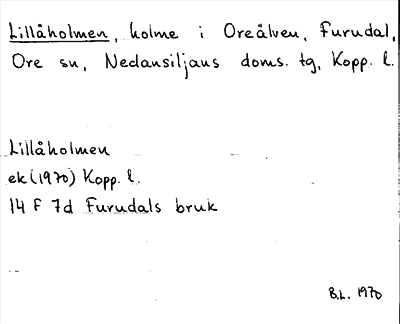 Lillåholmen, holme i Oreälven, Furudal,
Ore sn, Nedansiljans doms. tg, Kopp. l.
Lillåholmen
ek (1970) Kopp. l.
14 F 7d Furudals bruk
B.L. 1970